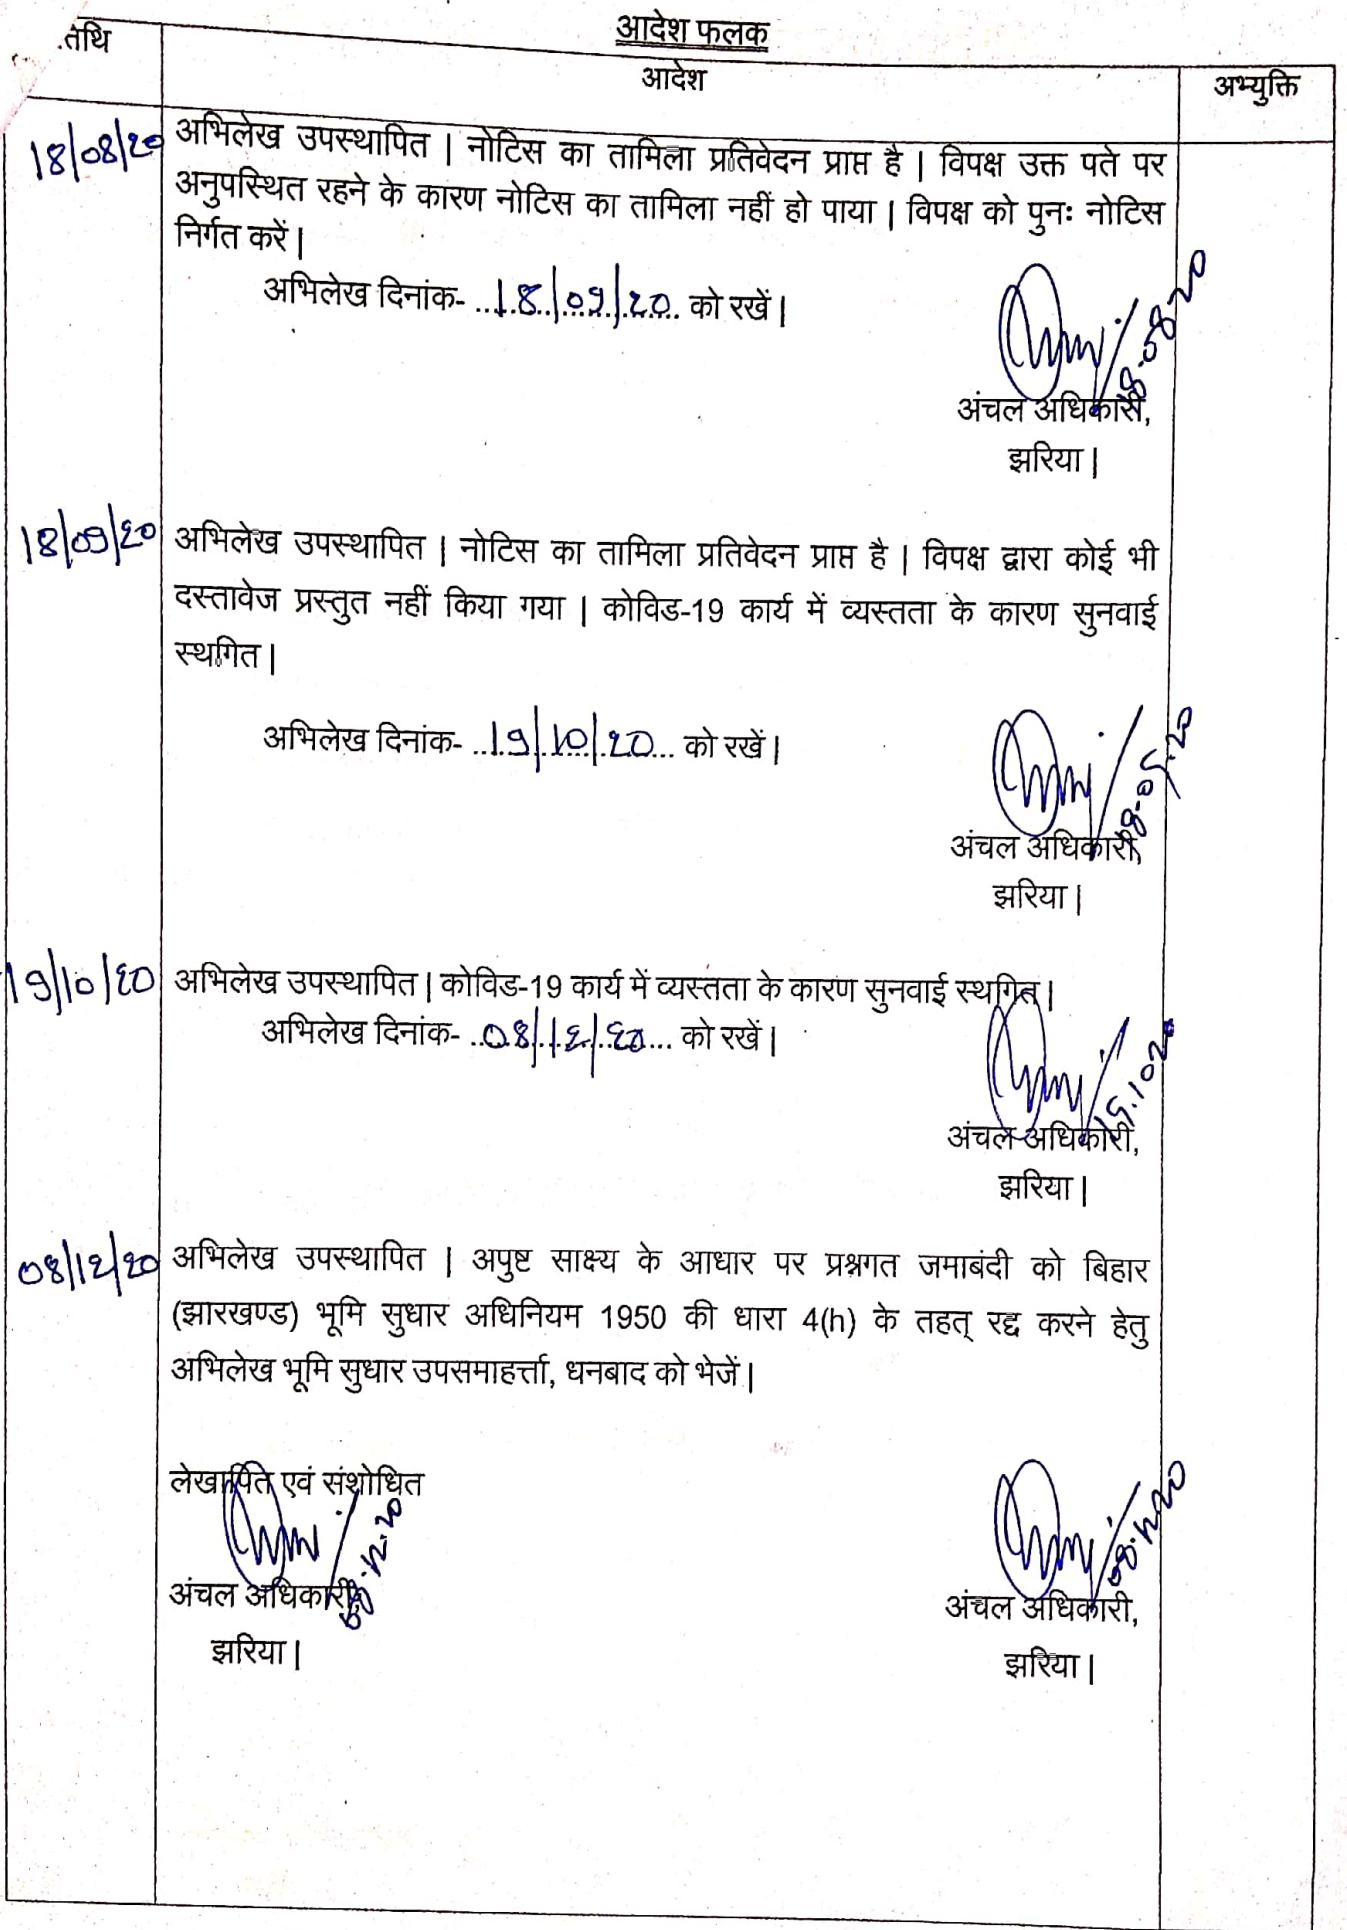 आदेश फलक
.तिथि
आदेश
अभ्युक्ति
18/08/20
अभिलेख उपस्थापित | नोटिस का तामिला प्रतिवेदन प्राप्त है | विपक्ष उक्त पते पर
अनुपस्थित रहने के कारण नोटिस का तामिला नहीं हो पाया | विपक्ष को पुनः नोटिस
निर्गत करें |
अभिलेख दिनांक- ...18/09/20... को रखें |
18.08.20
अंचल अधिकारी,
झरिया |
18/09/20
अभिलेख उपस्थापित | नोटिस का तामिला प्रतिवेदन प्राप्त है | विपक्ष द्वारा कोई भी
दस्तावेज प्रस्तुत नहीं किया गया | कोविड-19 कार्य में व्यस्तता के कारण सुनवाई
स्थगित |
अभिलेख दिनांक- ...19/10/20... को रखें |
18.09.20
अंचल अधिकारी,
झरिया |
19/10/20
अभिलेख उपस्थापित | कोविड-19 कार्य में व्यस्तता के कारण सुनवाई स्थगित |
अभिलेख दिनांक- ...08/12/20... को रखें |
19.10.20
अंचल अधिकारी,
झरिया |
08/12/20
अभिलेख उपस्थापित | अपुष्ट साक्ष्य के आधार पर प्रश्नगत जमाबंदी को बिहार
(झारखण्ड) भूमि सुधार अधिनियम 1950 की धारा 4(h) के तहत् रद्द करने हेतु
अभिलेख भूमि सुधार उपसमाहर्त्ता, धनबाद को भेजें |
लेखापित एवं संशोधित
08.12.20
अंचल अधिकारी,
झरिया |
08.12.20
अंचल अधिकारी,
झरिया |